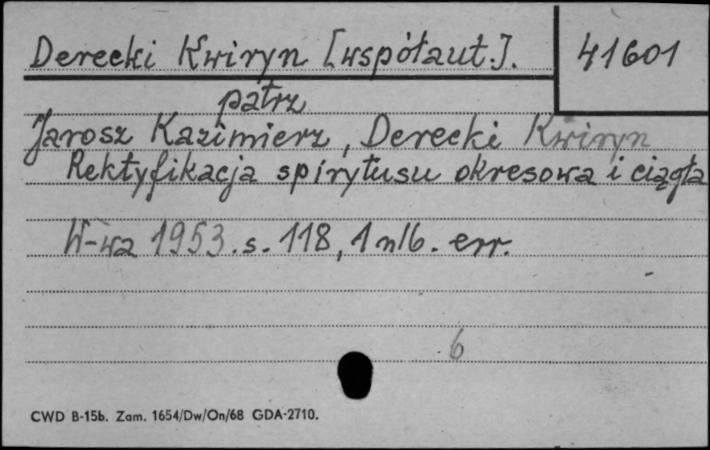 Derecki Kwiryn [współaut.].
41601
patrz
Jarosz Kazimierz, Derecki Kwiryn
Rektyfikacja spirytusu okresowa i ciągła
W-wa 1953. s. 118, 1 nlb. err.
6
CWD B-15b. Zam. 1654/Dw/On/68 GDA-2710.